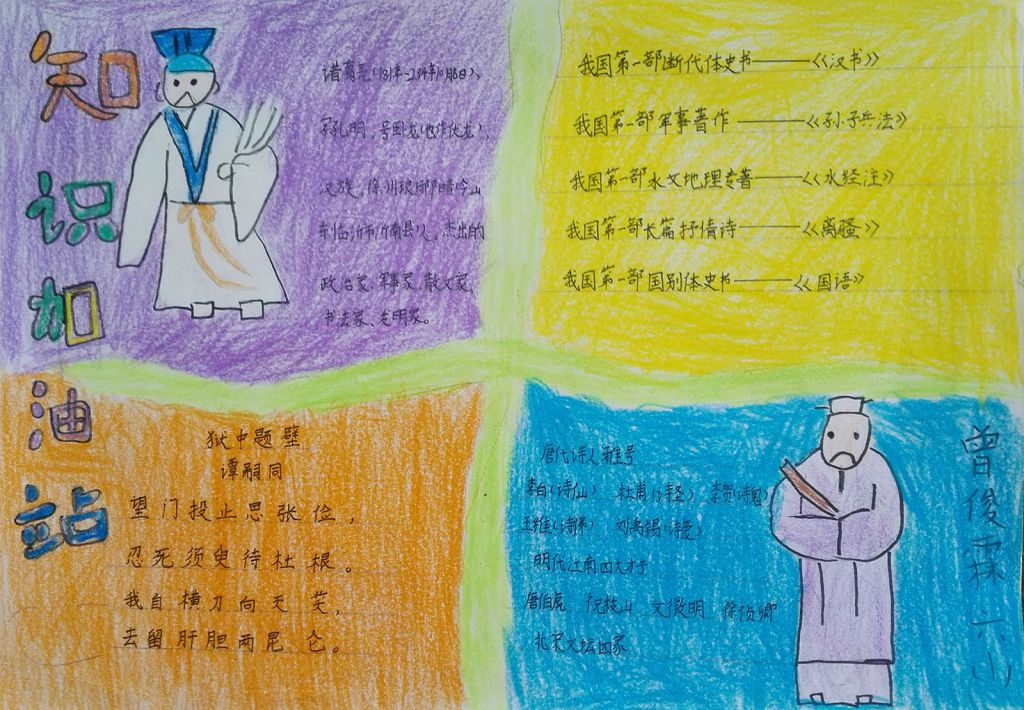 知识加油站
诸葛亮(181年-234年10月8日)、
字孔明,号卧龙(也作伏龙)
汉族,徐州琅琊阳都(今山
东临沂市沂南县)人,杰出的
政治家、军事家、散文家、
书法家、发明家。
我国第一部断代体史书——《汉书》
我国第一部军事著作——《孙子兵法》
我国第一部水文地理专著——《水经注》
我国第一部长篇抒情诗——《离骚》
我国第一部国别体史书——《国语》
狱中题壁
谭嗣同
望门投止思张俭,
忍死须臾待杜根。
我自横刀向天笑,
去留肝胆两昆仑。
唐代诗人雅号
李白(诗仙) 杜甫(诗圣) 李贺(诗鬼)
王维(诗佛) 刘禹锡(诗豪)
明代江南四大才子
唐伯虎 祝枝山 文徵明 徐祯卿
北宋文坛四家
曾俊霖 六小